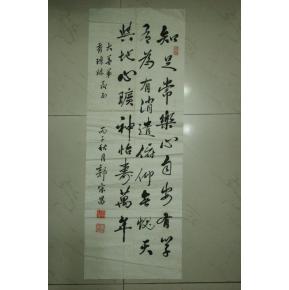 知足常樂心自安有學
有為有消遣俯仰無愧天
與地心曠神怡壽萬年
大
丙子秋月郭宗昌